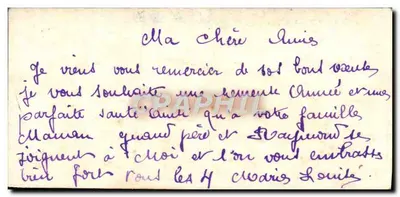 Ma chère Amie
Je viens vous remercier de vos bons vœux
je vous souhaite une Année et une
parfaite santé qu'a votre famille
Maman grand père et Raymond se
joignent à Moi et l'on vous embrasse
bien fort tous les 4 Marie Louise.